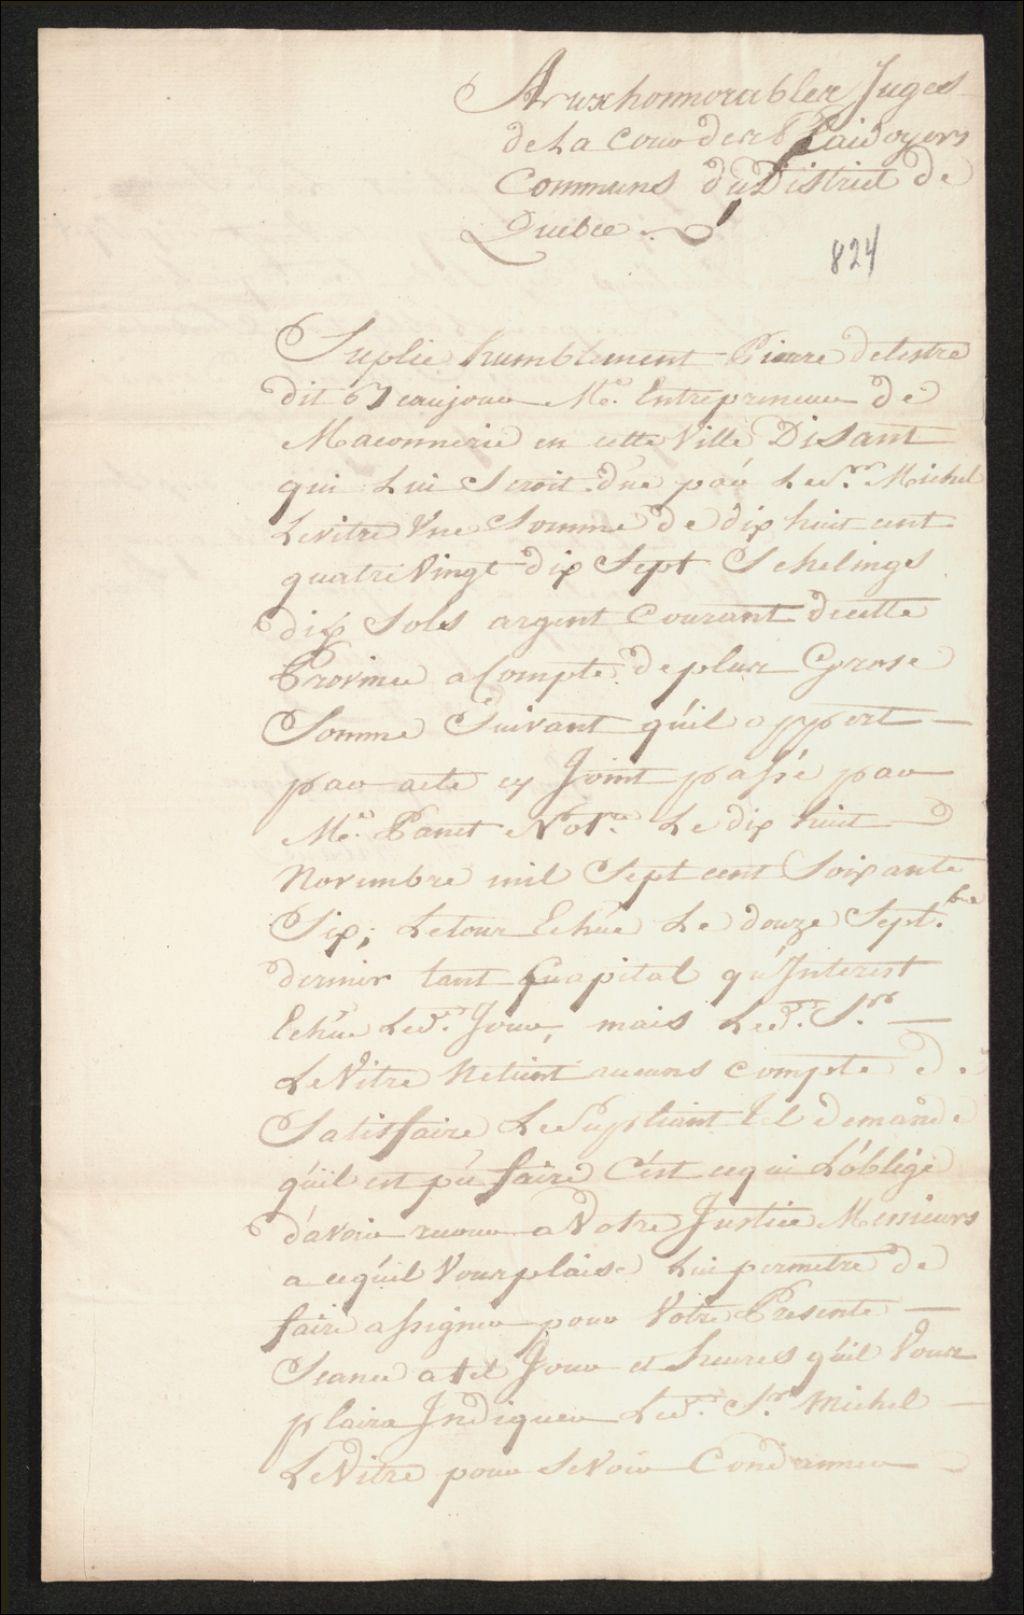 Aux honnorables Juges
de La Cour des Plaidoyers
Communs du District de
Quebec.
824
Suplie humblement Pierre delestre
dit Beaujour Me. Entrepreneur de
Maconnerie en cette Ville Disant
qui Lui Seroit düe par Le Sr. Michel
Levitre Une Somme de dix huit cent
quatre Vingt dix Sept Schelings
dix Sols argent Courant decette
Province a Compte de plus Grose
Somme Suivant qúil appert
par acte cy Joint passé par
Me. Panet Notre. Le dix huit
Novembre mil Sept cent Soixante
Six; Letour Echúe Le douze Septbre.
dernier tant Cuapital qu'Interest
Echúe Led. Jour, mais Led. Sr.
LeVitre Netient aucuns compte de
Satisfaire LeSupliant tel demande
qúil est pú faire C'est cequi L'óblige
d'avoir recour a Votre Justice Messieurs
a cequíl Vous plaise Lui permetre de
faire assigner pour Votre Presente
Seance a tel Jour et heures qúil Vous
plaira Indiquer Led. Sr. Michel
LeVitre pour seVoir Condanner